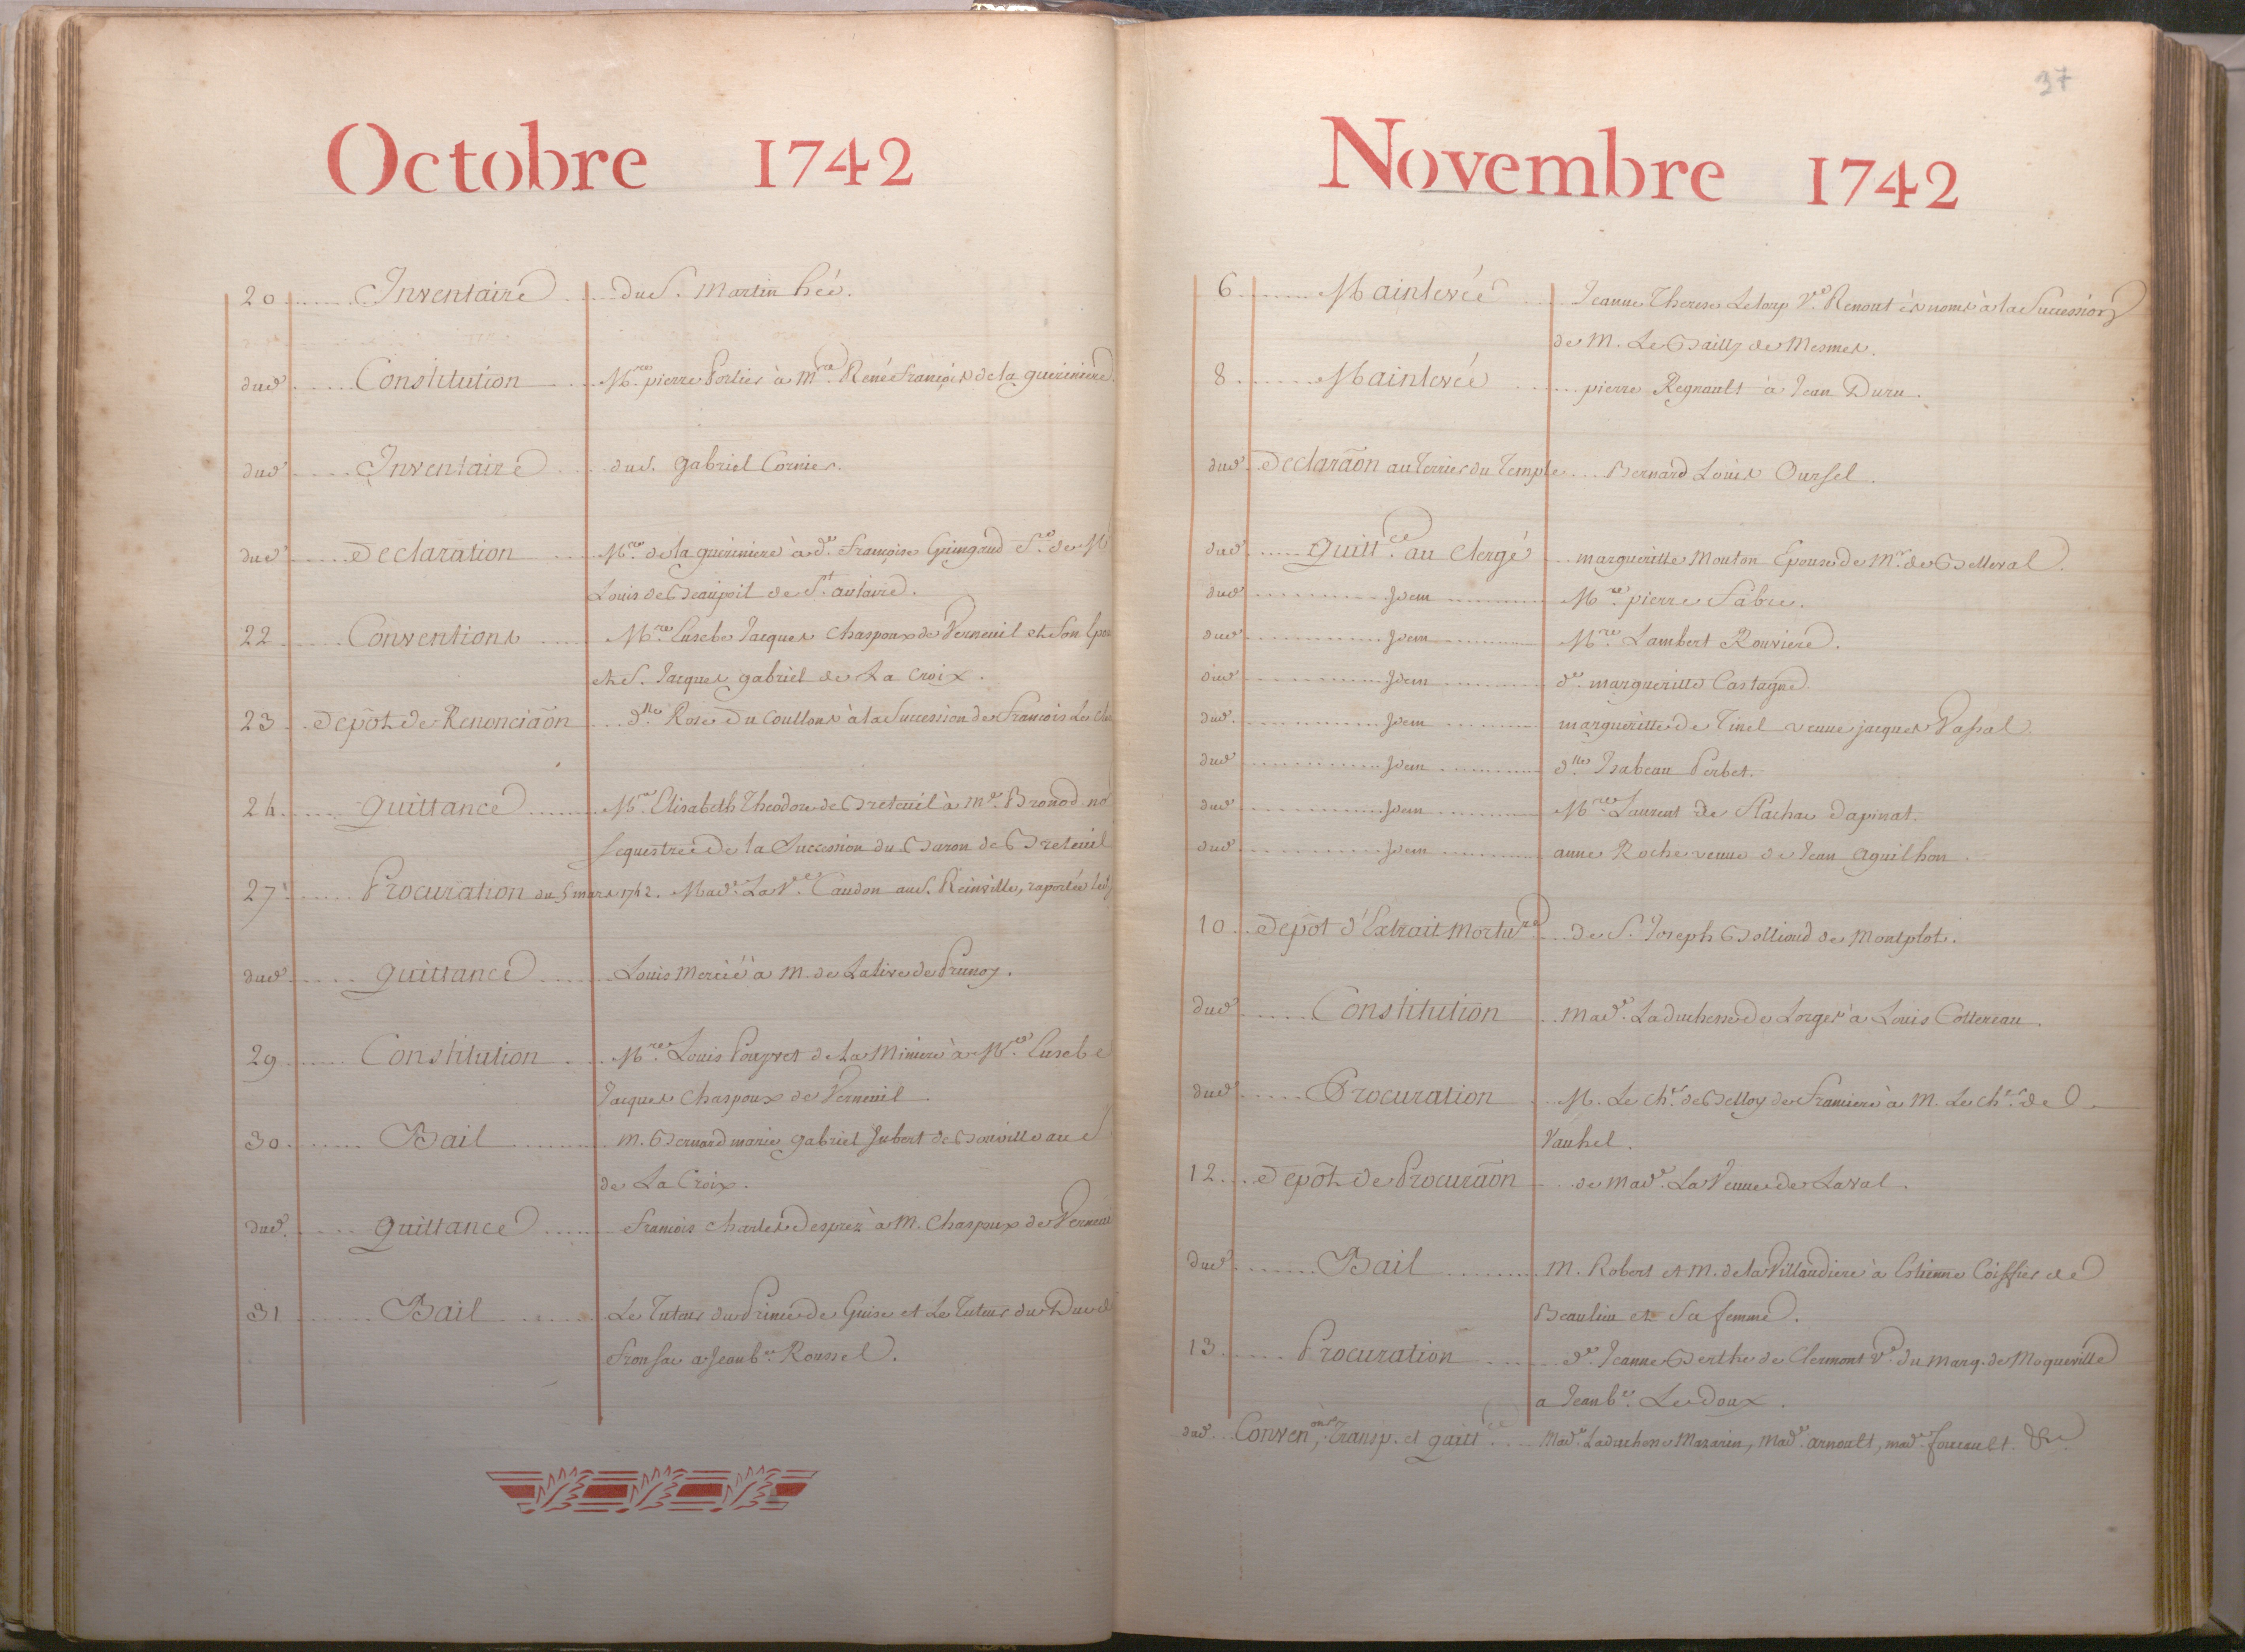 Octobre 1742
20 Inventaire du S. Martin hée.
dud. Constitution M.re pierre Portier à M.re René François de la gueriniere
dud. Inventaire du S. gabriel Cornier.
dud. Declaration M.re de la guériniere à d.e Françoise Guingaud
Louis de Beaupoil de S.t aulaire.
22 Conventions M.re Eusebe Jacques Chaspoux de Verneuil et son
et S. Jacques gabriel de La Croix.
23 Depôt de Renonciaõn d.lle Rose Du Coullons à la Succession de Francois
24 quittance M.re Elisabeth Theodore de Breteuil à M.e Bronod
sequestre de la Succession du Baron de Breteuil
27 Procuration du 5 mars 1742. Mad.e La V.e Caudon au S. Reinville, raportée
dud. quittance Louis Mercié à M. de Lalive de Prunoy.
29 Constitution M.re Louis Pouyvet de La Miniere à M.re Eusebe
Jacques Chaspoux de Verneuil.
30 Bail M. Bernard marie gabriel Jubert de Bouville au S
de La Croix.
dud. quittance François Charles Desprez à M. Chaspoux de Verneuil
31 Bail Le Tuteur du Prince de Guise et Le Tuteur du Duc de
Fronsac a Jean b.te Roussel.
37
Novembre 1742
6 Mainlevée Jeanne Therese V.e Renout ès noms à la Succession
de M. Le Bailly de Mesmes.
8 Mainlevée pierre Regnault à Jean Duru.
dud. Declaraõn au Terrier du Temple Bernard Louis Oursel.
dud. Quitt.ce au Clergé marguerille Mouton Epouse de M.r de Belleval.
dud. Idem M.re pierre Fabre.
dud. Idem M.re Lambert Rouviere.
dud. Idem d.e marguerille Castagne.
dud. Idem marguerille de Tinel veuve jacques Vassal.
dud. Idem d.lle Isabeau Perbet.
dud. Idem M.re Laurent de Flachac Dapinat.
dud. Idem anne Roche veuve de Jean Aguilhon.
10 Depôt d'Extrait Mortu.re de S. Joseph Bollioud de Montplot.
dud. Constitution Mad.e La duchesse de Lorges à Louis Cottereau.
dud. Procuration M. Le Ch.er de Belloy de Franciere à M. Le Ch.er de
Vauhel.
12 Depôt de Procuraõn de Mad.e La Veuve de Laval.
dud. Bail M. Robert et M. de la Villaudiere à Estienne Coiffier de
Beaulieu et Sa femme.
13 Procuration d.e Jeanne Berthe de Clermont V.e du Marq. de Moqueville
a Jean b.te Ledoux.
dud. Conven.ons, Transp. et quitt.ce Mad.e La duchesse Mazarin, Mad.e Arnoult, mad.e foucault &c.